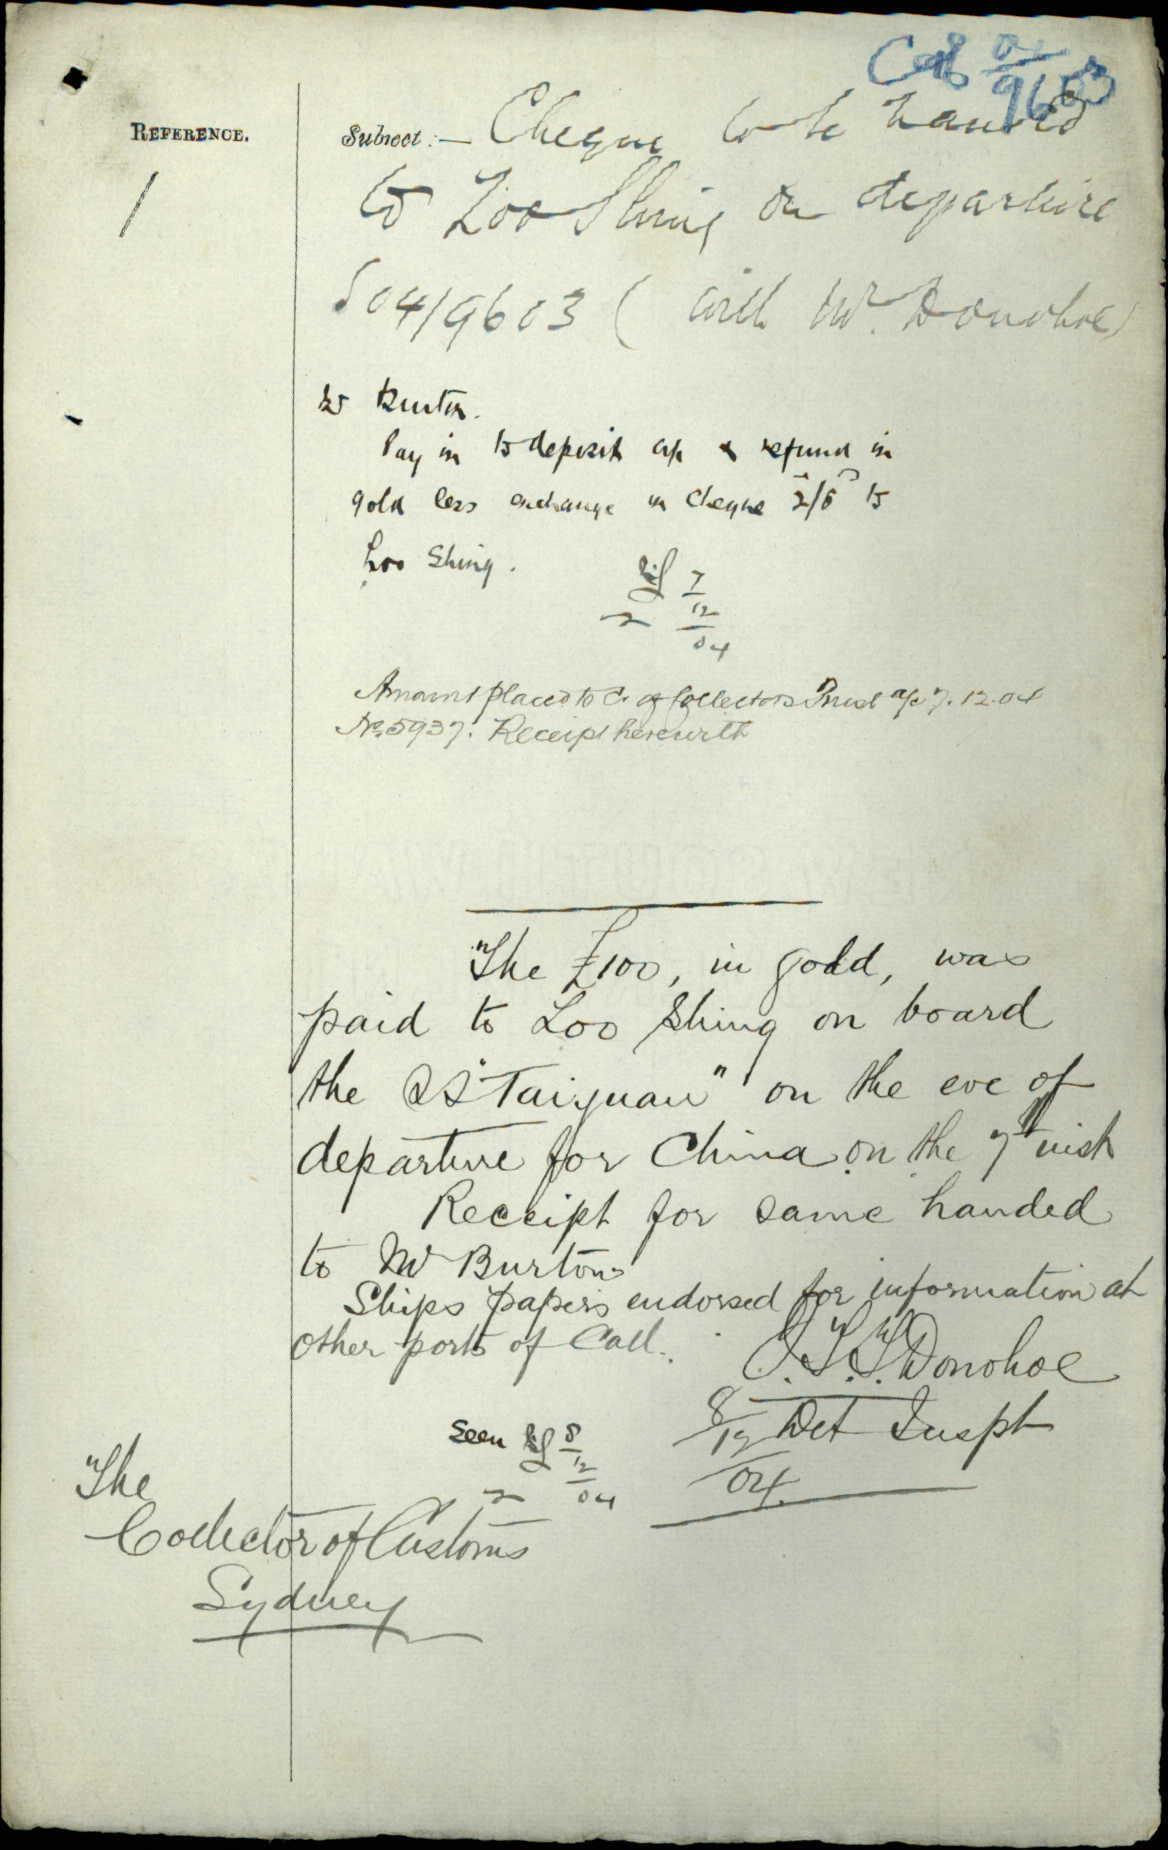 04
9603
REFERENCE.
Subject:— Cheque to be handed
1
to Loo Shing on departure
S04/9603 ( with Mr. Donohoe)
Mr Burton.
Pay in to deposit a/c & refund in
gold less exchange in cheque 2/6 to
Loo Shing.
7
12
04
Amount placed to Cr of Collectors Trust a/c 7.12.04
No. 5937. Receipt herewith
The £100, in gold, was
paid to Loo Shing on board
the SS "Taiyuan" on the eve of
departure for China on the 7th inst
Receipt for same handed
to Mr Burton
Ships papers endorsed for information at
other ports of Call.
J.T.T. Donohoe
8/12/04 Det Inspt
Seen 8
12
04
The
Collector of Customs
Sydney